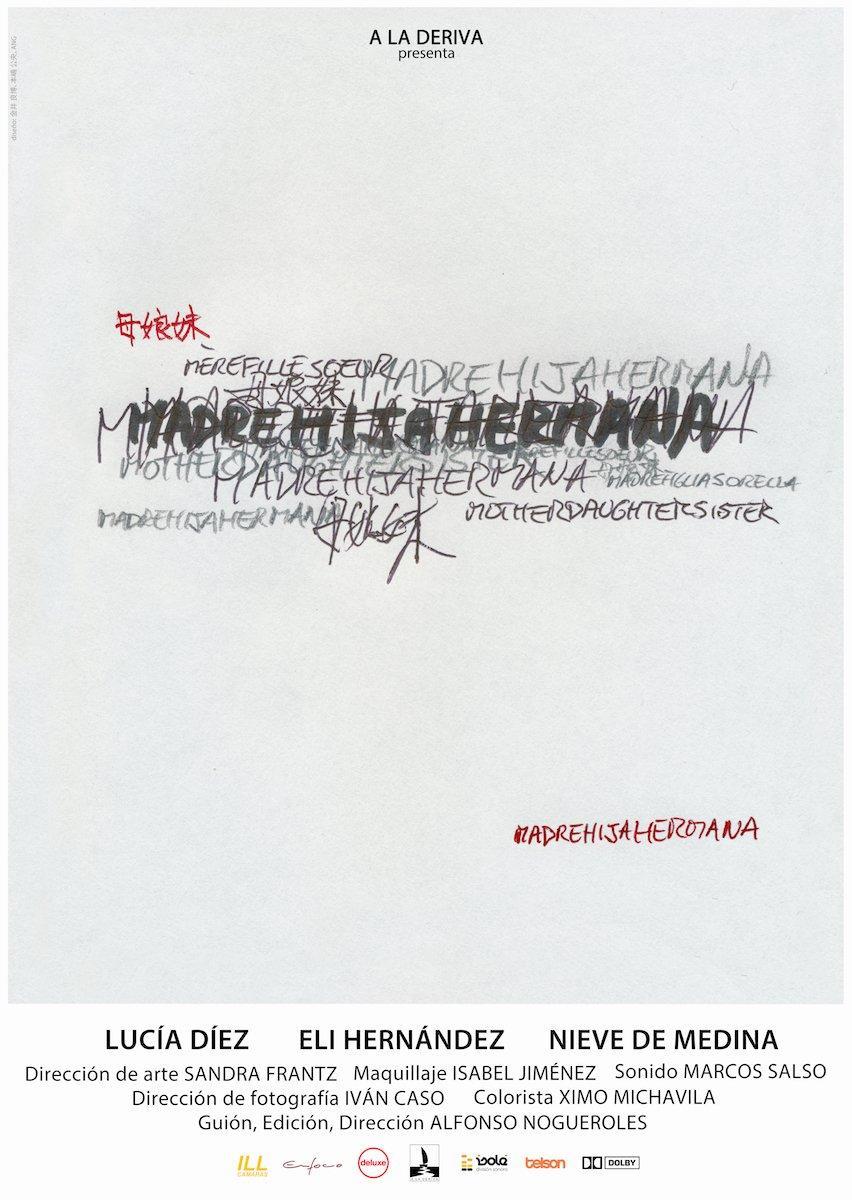 A LA DERIVA
presenta
diseño: 金井 良博、本嶋 公央、ANG
母娘妹
MÈREFILLESOEUR
MADREHIJAHERMANA
母娘妹
MADREHIJAHERMANA
MADREHIJAHERMANA
MADREFIGLIASORELLA
MADREHIJAHERMANA
母娘妹
MOTHERDAUGHTERSISTER
MADREHIJAHERMANA
LUCÍA DÍEZ ELI HERNÁNDEZ NIEVE DE MEDINA
Dirección de arte SANDRA FRANTZ Maquillaje ISABEL JIMÉNEZ Sonido MARCOS SALSO
Dirección de fotografía IVÁN CASO Colorista XIMO MICHAVILA
Guión, Edición, Dirección ALFONSO NOGUEROLES
ILL CAMARAS enfoco deluxe A LA DERIVA isolé división sonora telson DOLBY